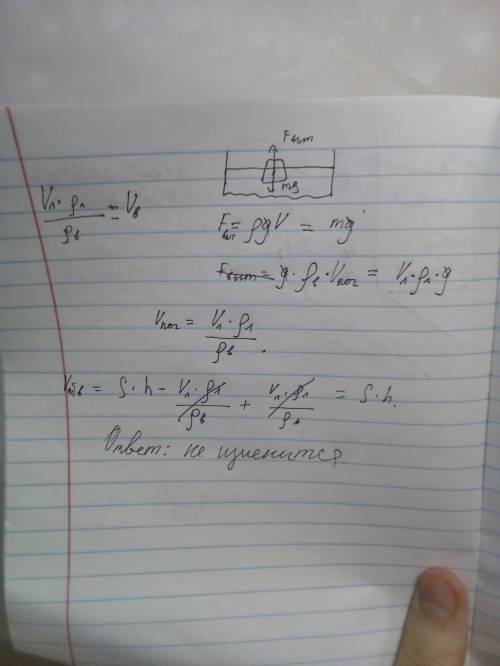 Fвыт
mg
Vл·ρл / ρв = Vв
Fвыт = ρgV = mg
Fвыт = g·ρв·Vпог = Vл·ρл·g
Vпог = Vл·ρл / ρв.
= S·h - Vл·ρл / ρв + Vл·ρл / ρв = S·h.
Ответ: не изменится.